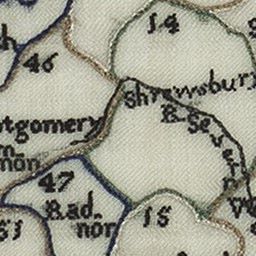 14
46
Shrewsbury
R. Severn
tgomery
mōn
47
Rad
nor
15
51